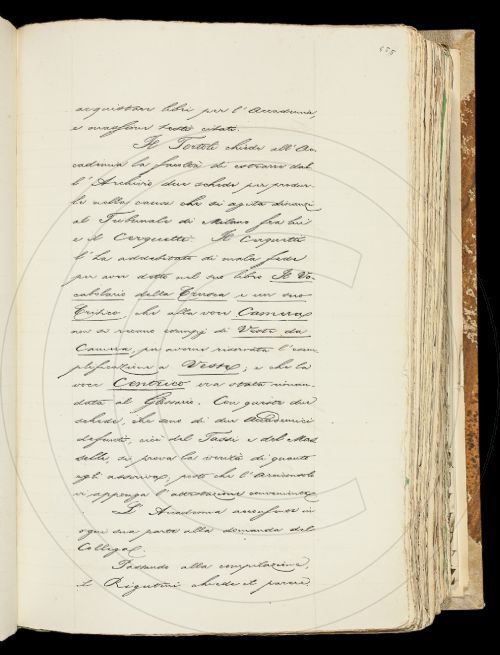 455
acquistar libri per l'Accademia,
e massime testi citati.
Il Tortoli chiede all'Ac-
cademia la facoltà di estrarre dal-
l'Archivio due schede per produr-
le nella causa che si agita dinanzi
al Tribunale di Milano fra lui
e il Cerquetti. Il Cerquetti
l'ha addebitato di mala fede
per aver detto nel suo libro Il Vo-
cabolario della Crusca e un suo
Critico, che alla voce Camera
non si recano esempj di Veste da
Camera per averne riservata l'esem-
plificazione a Veste; e che la
voce Centrico era stata riman-
data al Glossario. Con queste due
schede, che sono di due Accademici
defunti, cioè del Tassi e del Mas-
selli, si prova la verità di quanto
egli asseriva, posto che l'Arciconsolo
vi apponga l'attestazione conveniente.
L'Accademia acconsente in
ogni sua parte alla domanda del
Collega.
Passando alla compilazione,
il Rigutini chiede il parere